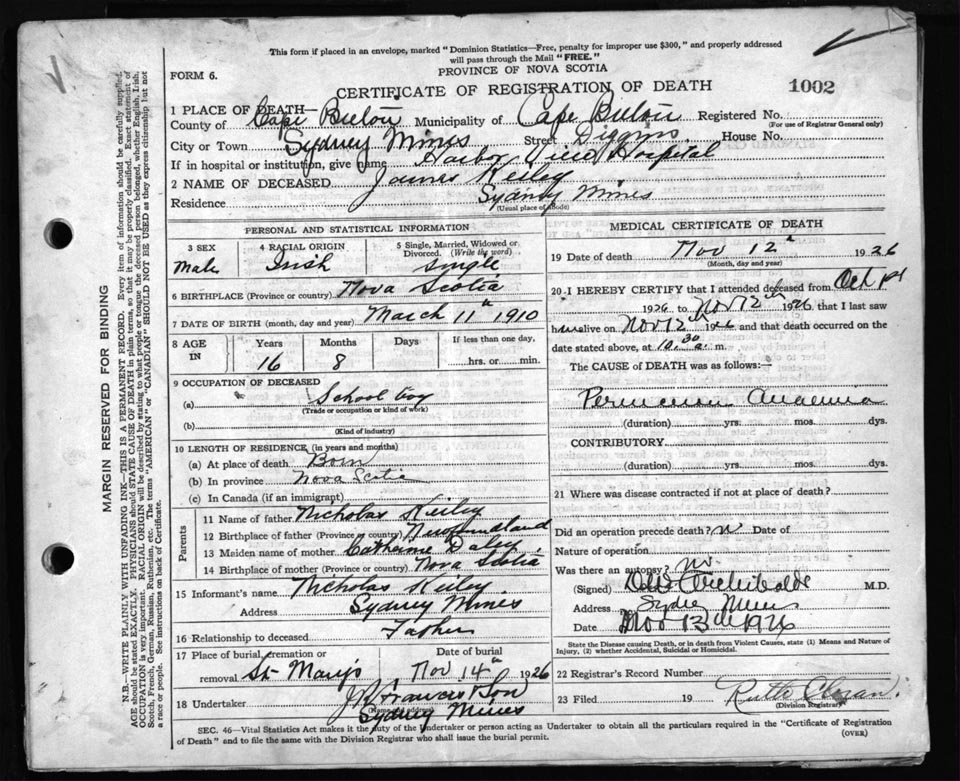 This form if placed in an envelope, marked "Dominion Statistics—Free, penalty for improper use $300," and properly addressed
will pass through the Mail "FREE."
PROVINCE OF NOVA SCOTIA
FORM 6.
CERTIFICATE OF REGISTRATION OF DEATH
1002
1 PLACE OF DEATH—
County of Cape Breton Municipality of Cape Breton Registered No.
(For use of Registrar General only)
City or Town Sydney Mines Street Diggins House No.
If in hospital or institution, give name Harbor View Hospital
2 NAME OF DECEASED James Keiley
Residence Sydney Mines
(Usual place of abode)
PERSONAL AND STATISTICAL INFORMATION
3 SEX 4 RACIAL ORIGIN 5 Single, Married, Widowed or Divorced. (Write the word)
Male Irish Single
6 BIRTHPLACE (Province or country) Nova Scotia
7 DATE OF BIRTH (month, day and year) March 11th 1910
8 AGE IN Years Months Days If less than one day,
16 8 hrs. or min.
9 OCCUPATION OF DECEASED
(a) School boy
(Trade or occupation or kind of work)
(b)
(Kind of industry)
10 LENGTH OF RESIDENCE (in years and months)
(a) At place of death Born
(b) In province Nova Scotia
(c) In Canada (if an immigrant)
Parents
11 Name of father Nicholas Keiley
12 Birthplace of father (Province or country) Newfoundland
13 Maiden name of mother Catherine Daley
14 Birthplace of mother (Province or country) Nova Scotia
15 Informant's name Nicholas Keiley
Address Sydney Mines
16 Relationship to deceased Father
17 Place of burial, cremation or removal St Mary's
Date of burial
Nov 14th 1926
18 Undertaker J Francis & Son
Sydney Mines
MEDICAL CERTIFICATE OF DEATH
19 Date of death Nov 12th 1926
(Month, day and year)
20 I HEREBY CERTIFY that I attended deceased from Oct 1st
1926 to Nov 12th 1926 that I last saw
him alive on Nov 12th 1926 and that death occurred on
date stated above, at 10.30 a. m.
The CAUSE of DEATH was as follows:—
Pernicious Anaemia
(duration) yrs. mos. dys.
CONTRIBUTORY
(duration) yrs. mos. dys.
21 Where was disease contracted if not at place of death?
Did an operation precede death? no Date of
Nature of operation
Was there an autopsy? no.
(Signed) Archibald M.D.
Address Sydney Mines
Date Nov 13th 1926
State the Disease causing Death, or in death from Violent Causes, state (1) Means and Nature of
Injury, (2) whether Accidental, Suicidal or Homicidal.
22 Registrar's Record Number
23 Filed 19 Ruth
(Division Registrar)
SEC. 46—Vital Statistics Act makes it the duty of the Undertaker or person acting as Undertaker to obtain all the particulars required in the "Certificate of Registration
of Death" and to file the same with the Division Registrar who shall issue the burial permit.
(OVER)
MARGIN RESERVED FOR BINDING
N.B.—WRITE PLAINLY WITH UNFADING INK—THIS IS A PERMANENT RECORD. Every item of information should be carefully supplied.
AGE should be stated EXACTLY. PHYSICIANS should STATE CAUSE OF DEATH in plain terms, so that it may be properly classified. Exact statement of
OCCUPATION is very important. RACIAL ORIGIN will be described by stating to what people or tongue the deceased person belonged, whether English, Irish,
Scotch, French, German, Russian, Ruthenian, etc. The terms "AMERICAN" or "CANADIAN" SHOULD NOT BE USED as they express citizenship but not
a race or people. See instructions on back of Certificate.